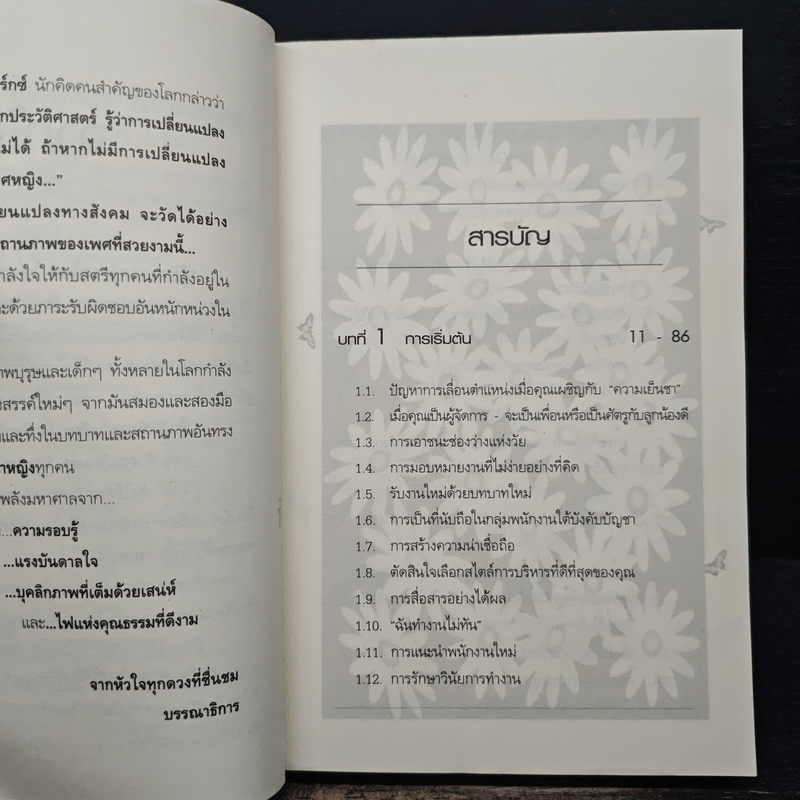 ร์กซ์ นักคิดคนสำคัญของโลกกล่าวว่า
ประวัติศาสตร์ รู้ว่าการเปลี่ยนแปลง
ม่ได้ ถ้าหากไม่มีการเปลี่ยนแปลง
ศหญิง..."
ยนแปลงทางสังคม จะวัดได้อย่าง
ถานภาพของเพศที่สวยงามนี้...
ำลังใจให้กับสตรีทุกคนที่กำลังอยู่ใน
ะด้วยภาระรับผิดชอบอันหนักหน่วงใน
พบุรุษและเด็กๆ ทั้งหลายในโลกกำลัง
สรรค์ใหม่ๆ จากมันสมองและสองมือ
และทึ่งในบทบาทและสถานภาพอันทรง
หญิงทุกคน
พลังมหาศาลจาก...
...ความรอบรู้
...แรงบันดาลใจ
...บุคลิกภาพที่เต็มด้วยเสน่ห์
และ...ไฟแห่งคุณธรรมที่ดีงาม
จากหัวใจทุกดวงที่ชื่นชม
บรรณาธิการ
สารบัญ
บทที่ 1 การเริ่มต้น 11 - 86
1.1. ปัญหาการเลื่อนตำแหน่งเมื่อคุณเผชิญกับ "ความเย็นชา"
1.2. เมื่อคุณเป็นผู้จัดการ - จะเป็นเพื่อนหรือเป็นศัตรูกับลูกน้องดี
1.3. การเอาชนะช่องว่างแห่งวัย
1.4. การมอบหมายงานที่ไม่ง่ายอย่างที่คิด
1.5. รับงานใหม่ด้วยบทบาทใหม่
1.6. การเป็นที่นับถือในกลุ่มพนักงานใต้บังคับบัญชา
1.7. การสร้างความน่าเชื่อถือ
1.8. ตัดสินใจเลือกสไตล์การบริหารที่ดีที่สุดของคุณ
1.9. การสื่อสารอย่างได้ผล
1.10. "ฉันทำงานไม่ทัน"
1.11. การแนะนำพนักงานใหม่
1.12. การรักษาวินัยการทำงาน